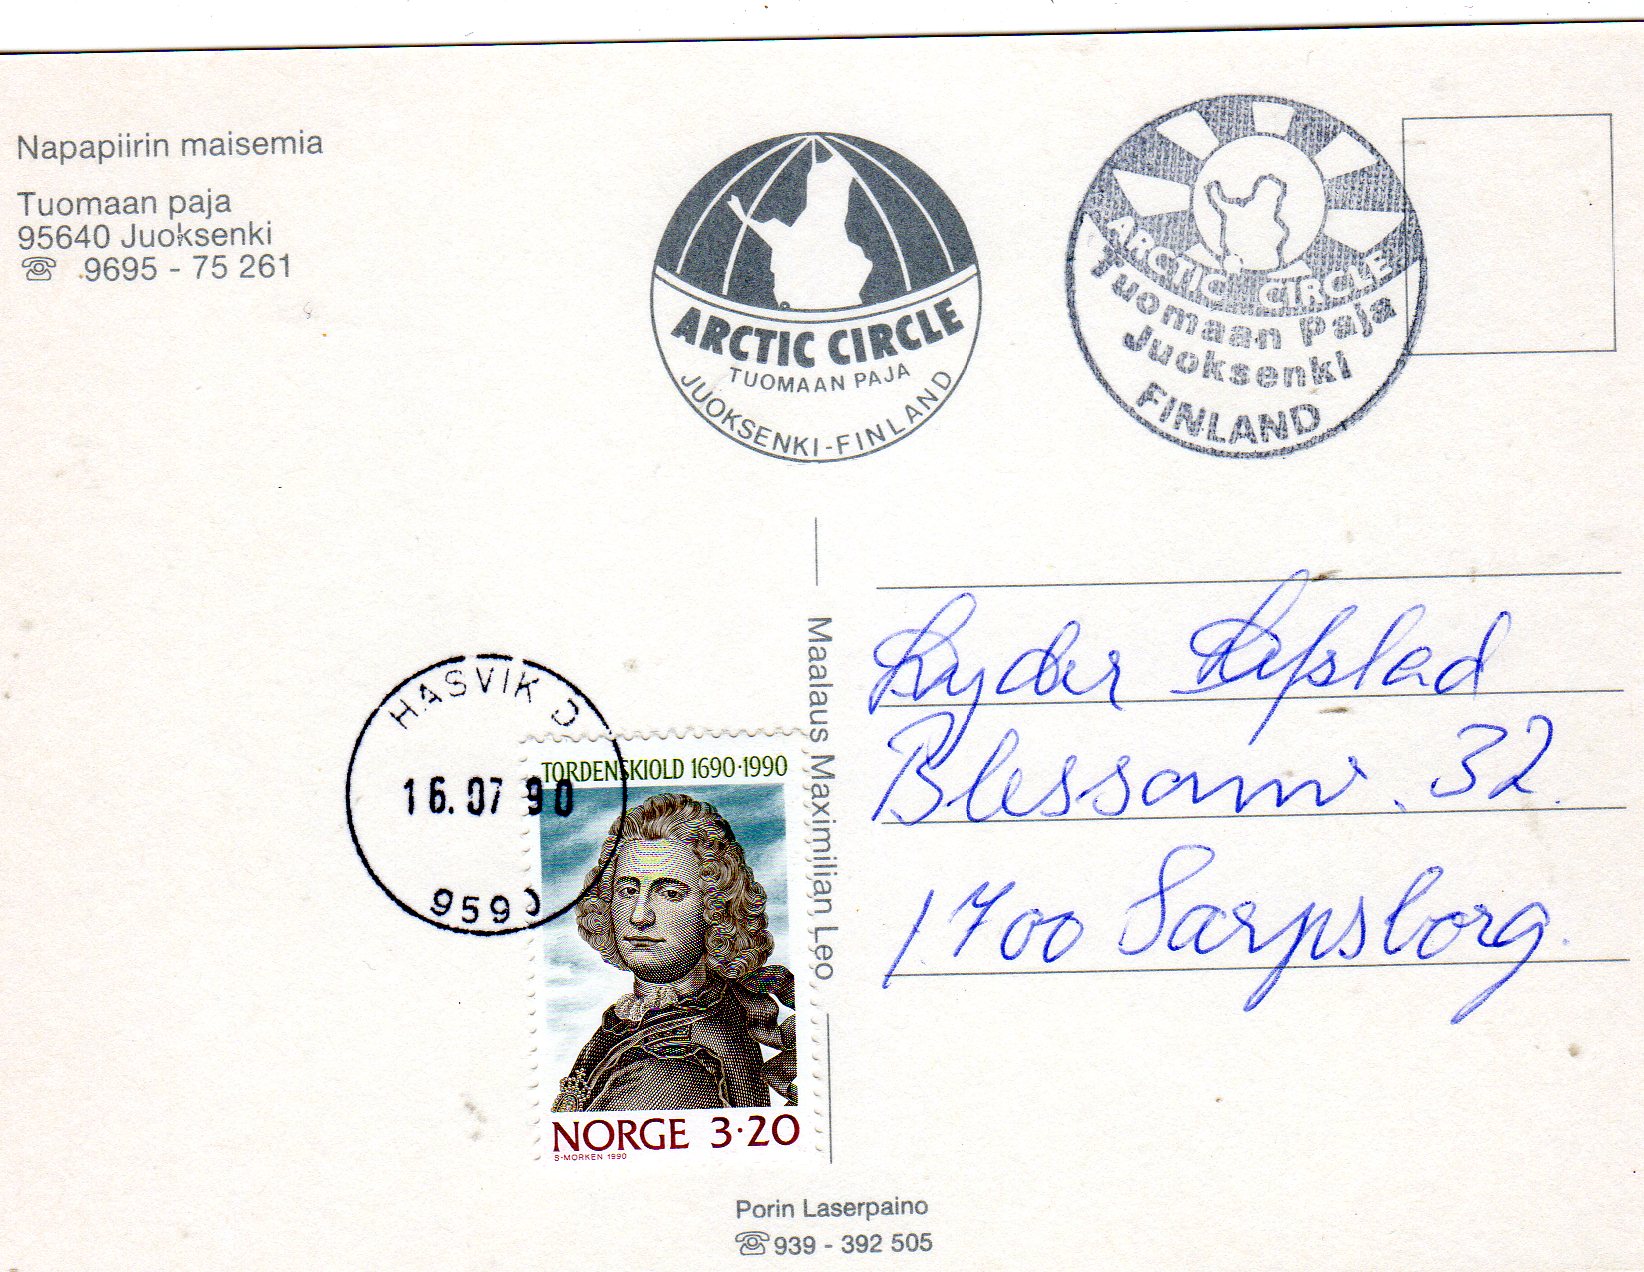 Napapiirin maisemia
Tuomaan paja
95640 Juoksenki
☏ 9695 - 75 261
ARCTIC CIRCLE
TUOMAAN PAJA
JUOKSENKI-FINLAND
ARCTIC CIRCLE
Tuomaan Paja
Juoksenki
FINLAND
Maalaus Maximilian Leo
HASVIK D
16.07 90
9590
TORDENSKIOLD 1690·1990
NORGE 3·20
S·MORKEN 1990
32
1700 Sarpsborg.
Porin Laserpaino
☏ 939 - 392 505